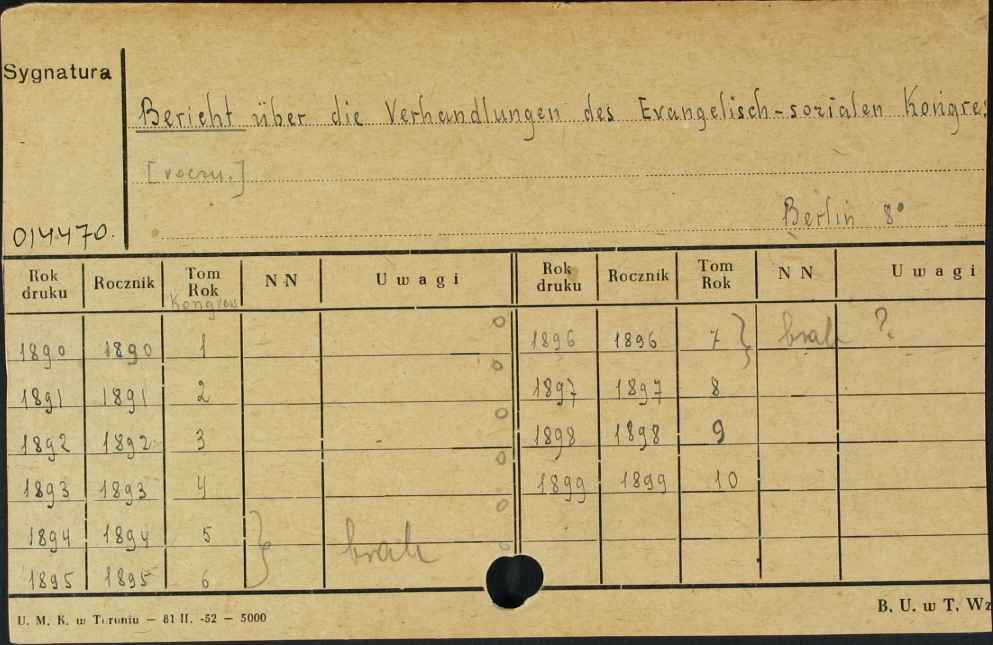 Sygnatura
Bericht über die Verhandlungen des Evangelisch-sozialen Kongres
[roczn.]
Berlin 8°
014470.
Rok druku Rocznik Tom Rok NN Uwagi Rok druku Rocznik Tom Rok NN Uwagi
Kongresu
1890 1890 1 1896 1896 7 } brak ?
1891 1891 2 1897 1897 8
1892 1892 3 1898 1898 9
1893 1893 4 1899 1899 10
1894 1894 5 } brak
1895 1895 6
U. M. K. w Toruniu — 81 II. -52 — 5000
B. U. w T. Wz